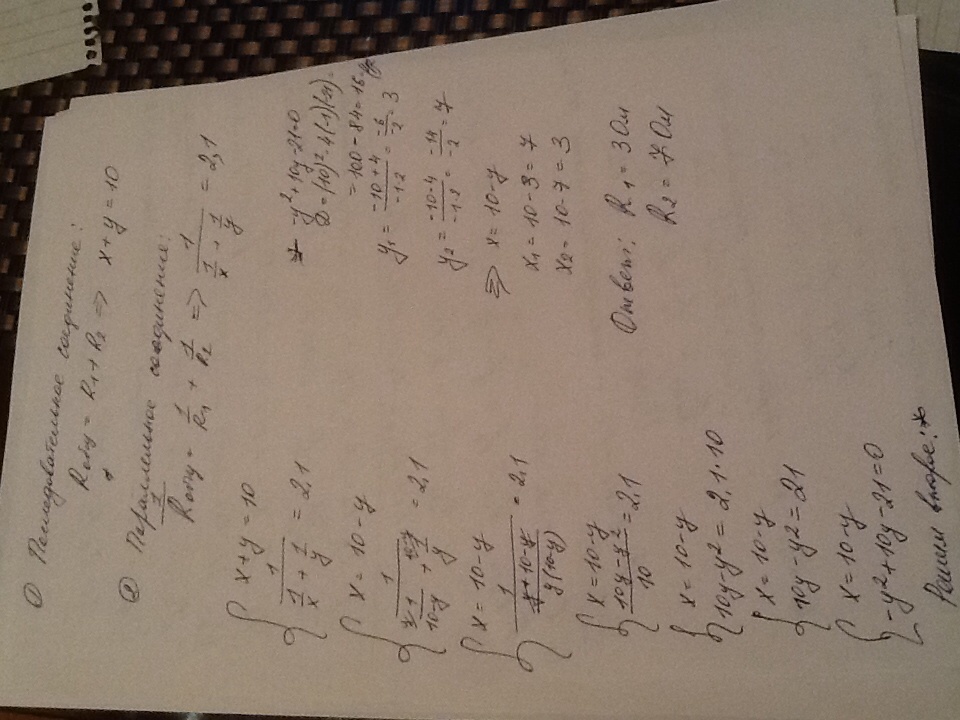 ① Последовательное соединение:
Rобщ = R1 + R2 => x + y = 10
② Параллельное соединение:
1/Rобщ = 1/R1 + 1/R2 => 1/(1/x + 1/y) = 2,1
{ x + y = 10
1/(1/x + 1/y) = 2,1
{ x = 10 - y
1/(1/(10-y) + 1/y) = 2,1
{ x = 10 - y
1/((y + 10 - y)/(y(10-y))) = 2,1
{ x = 10 - y
(10y - y²)/10 = 2,1
{ x = 10 - y
10y - y² = 2,1·10
{ x = 10 - y
10y - y² = 21
{ x = 10 - y
-y² + 10y - 21 = 0
Решим второе: *
* -y² + 10y - 21 = 0
D = (10)² - 4(-1)(-21) =
= 100 - 84 = 16
y1 = (-10 + 4)/(-1·2) = -6/-2 = 3
y2 = (-10 - 4)/(-1·2) = -14/-2 = 7
=> x = 10 - y
x1 = 10 - 3 = 7
x2 = 10 - 7 = 3
Ответ: R1 = 3 Ом
R2 = 7 Ом